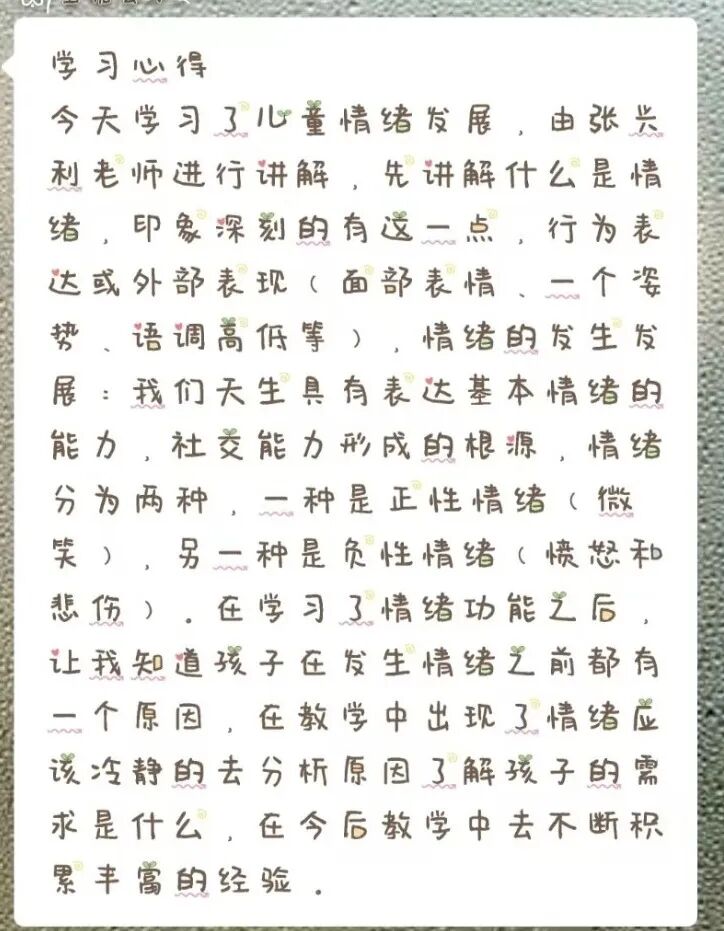 学习心得
今天学习了儿童情绪发展，由张兴
利老师进行讲解，先讲解什么是情
绪，印象深刻的有这一点，行为表
达或外部表现（面部表情、一个姿
势、语调高低等），情绪的发生发
展：我们天生具有表达基本情绪的
能力，社交能力形成的根源，情绪
分为两种，一种是正性情绪（微
笑），另一种是负性情绪（愤怒和
悲伤）．在学习了情绪功能之后，
让我知道孩子在发生情绪之前都有
一个原因，在教学中出现了情绪应
该冷静的去分析原因了解孩子的需
求是什么，在今后教学中去不断积
累丰富的经验．